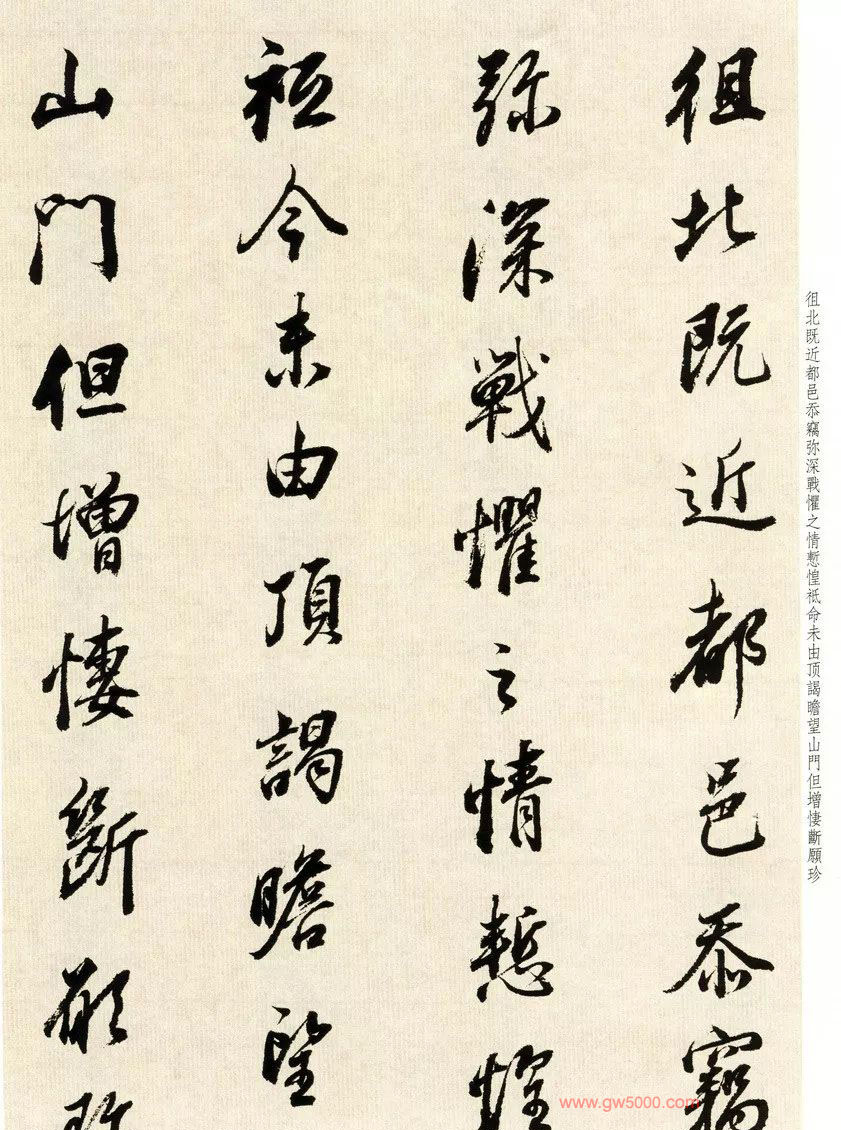 徂北既近都邑忝竊
弥深戰懼之情慙惶
祗今未由頂謁瞻望
山門但增悽斷願珍
徂北既近都邑忝竊弥深戰懼之情慙惶祗命未由顶謁瞻望山門但增悽斷願珍
www.gw5000.com